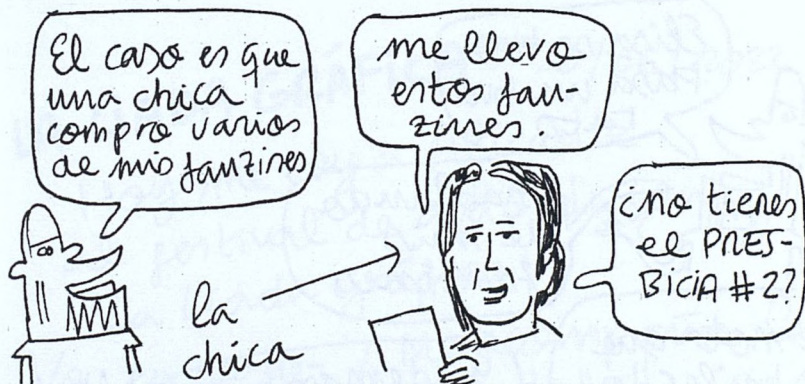 El caso es que
una chica
compró varios
de mis fanzines
me llevo
estos fan-
zines.
¿no tienes
el PRES-
BiCiA #2?
la
chica